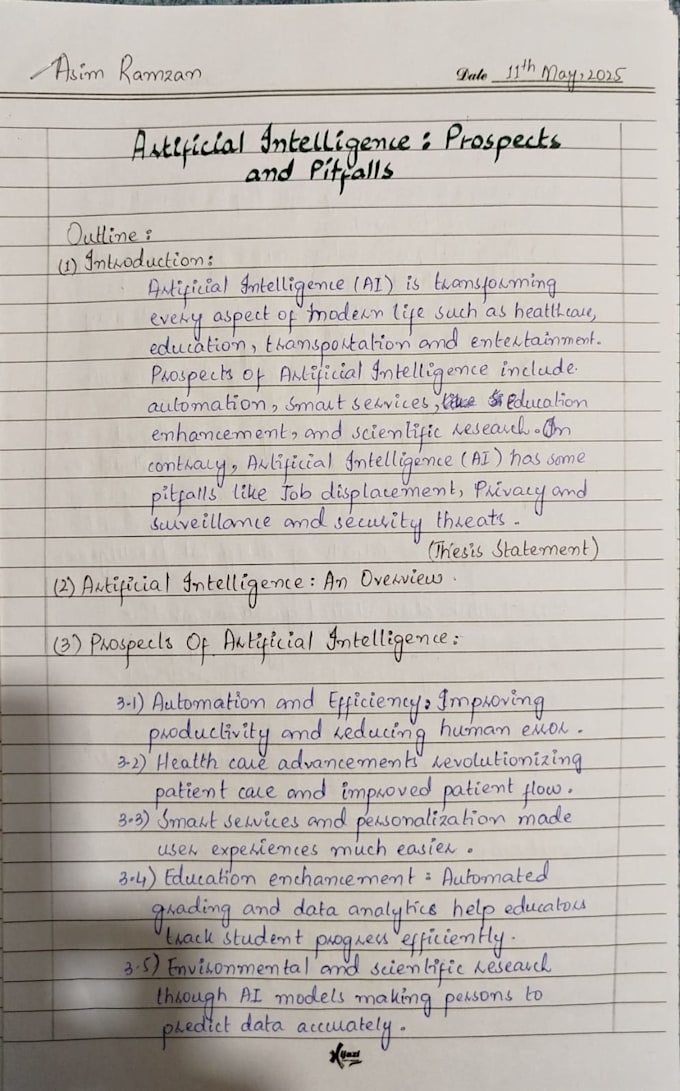 Asim Ramzan
Date 11th May, 2025
Artificial Intelligence : Prospects
and Pitfalls
Outline :
(1) Introduction :
Artificial Intelligence (AI) is transforming
every aspect of modern life such as healthcare,
education, transportation and entertainment.
Prospects of Artificial Intelligence include
automation, smart services, Education
enhancement, and scientific research. On
contracy, Artificial Intelligence (AI) has some
pitfalls like Job displacement, Privacy and
surveillance and security threats.
(Thesis Statement)
(2) Artificial Intelligence : An Overview.
(3) Prospects Of Artificial Intelligence :
3.1) Automation and Efficiency: Improving
productivity and reducing human error.
3.2) Health care advancements revolutionizing
patient care and improved patient flow.
3.3) Smart services and personalization made
user experiences much easier.
3.4) Education enchancement : Automated
grading and data analytics help educators
track student progress efficiently.
3.5) Environmental and scientific research
through AI models making persons to
predict data accurately.